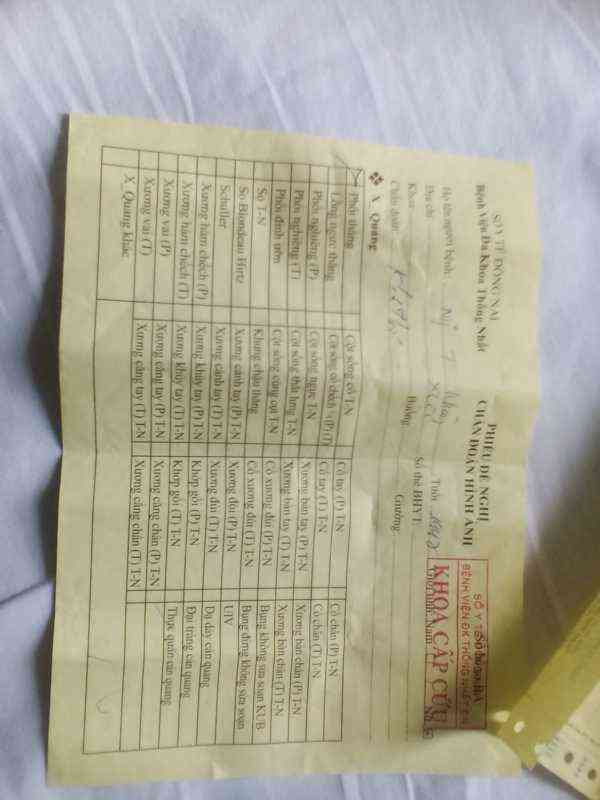 SỞ Y TẾ ĐỒNG NAI
Bệnh Viện Đa Khoa Thống Nhất
PHIẾU ĐỀ NGHỊ
CHẨN ĐOÁN HÌNH ẢNH
SỞ Y T
BỆNH VIỆN ĐK THỐNG NHẤT ĐN
KHOA CẤP CỨU
Họ tên người bệnh:
Địa chỉ
Số thẻ BHYT:
Khoa
Buồng:
Giường:
Chẩn đoán:
❖ X_Quang
Phổi thẳng Cột sống cổ T-N Cổ tay (P) T-N Cổ chân (P) T-N
Lồng ngực thẳng Cột sống cổ chếch ¾ (P) (T) Cổ tay (T) T-N Cổ chân (T) T-N
Phổi nghiêng (P) Cột sống ngực T-N Xương bàn tay (P) T-N Xương bàn chân (P) T-N
Phổi nghiêng (T) Cột sống thắt lưng T-N Xương bàn tay (T) T-N Xương bàn chân (T) T-N
Phổi đỉnh ưỡn Cột sống cùng cụt T-N Cổ xương đùi (P) T-N Bụng không sửa soạn KUB
Sọ T-N Khung chậu thẳng Cổ xương đùi (T) T-N Bụng đứng không sửa soạn
Sọ Blondeau-Hirtz Xương cánh tay (P) T-N Xương đùi (P) T-N UIV
Schuller Xương cánh tay (T) T-N Xương đùi (T) T-N Dạ dày cản quang
Xương hàm chếch (P) Xương khuỷu tay (P) T-N Khớp gối (P) T-N Đại tràng cản quang
Xương hàm chếch (T) Xương khuỷu tay (T) T-N Khớp gối (T) T-N Thực quản cản quang
Xương vai (P) Xương cẳng tay (P) T-N Xương cẳng chân (P) T-N
Xương vai (T) Xương cẳng tay (T) T-N Xương cẳng chân (T) T-N
X_Quang khác